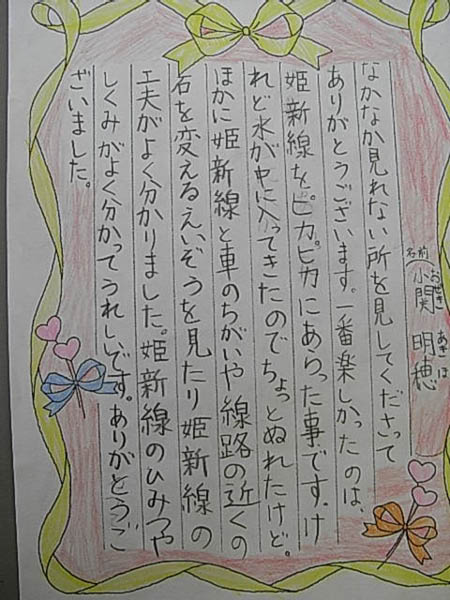 名前
小関 明穂
おぜき あきほ
なかなか見れない所を見してくださって
ありがとうございます。一番楽しかったのは、
姫新線をピカピカにあらった事です。け
れど水が中に入ってきたのでちょっとぬれたけど。
ほかに姫新線と車のちがいや線路の近くの
石を変えるえいぞうを見たり姫新線の
工夫がよく分かりました。姫新線のひみつや
しくみがよく分かってうれしいです。ありがとうご
ざいました。